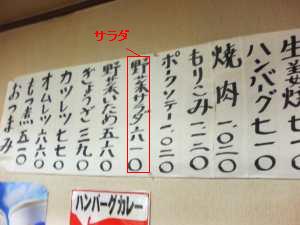 サラダ
生姜焼
ハンバーグ七一〇
焼肉一.〇二〇
もりこみ
ポークソテー一.〇二〇
野菜サラダ六一〇
野菜いため五六〇
ぎょうざ三九〇
カツレツ七七〇
オムレツ六六〇
もつ煮
おつまみ
ハンバーグカレー